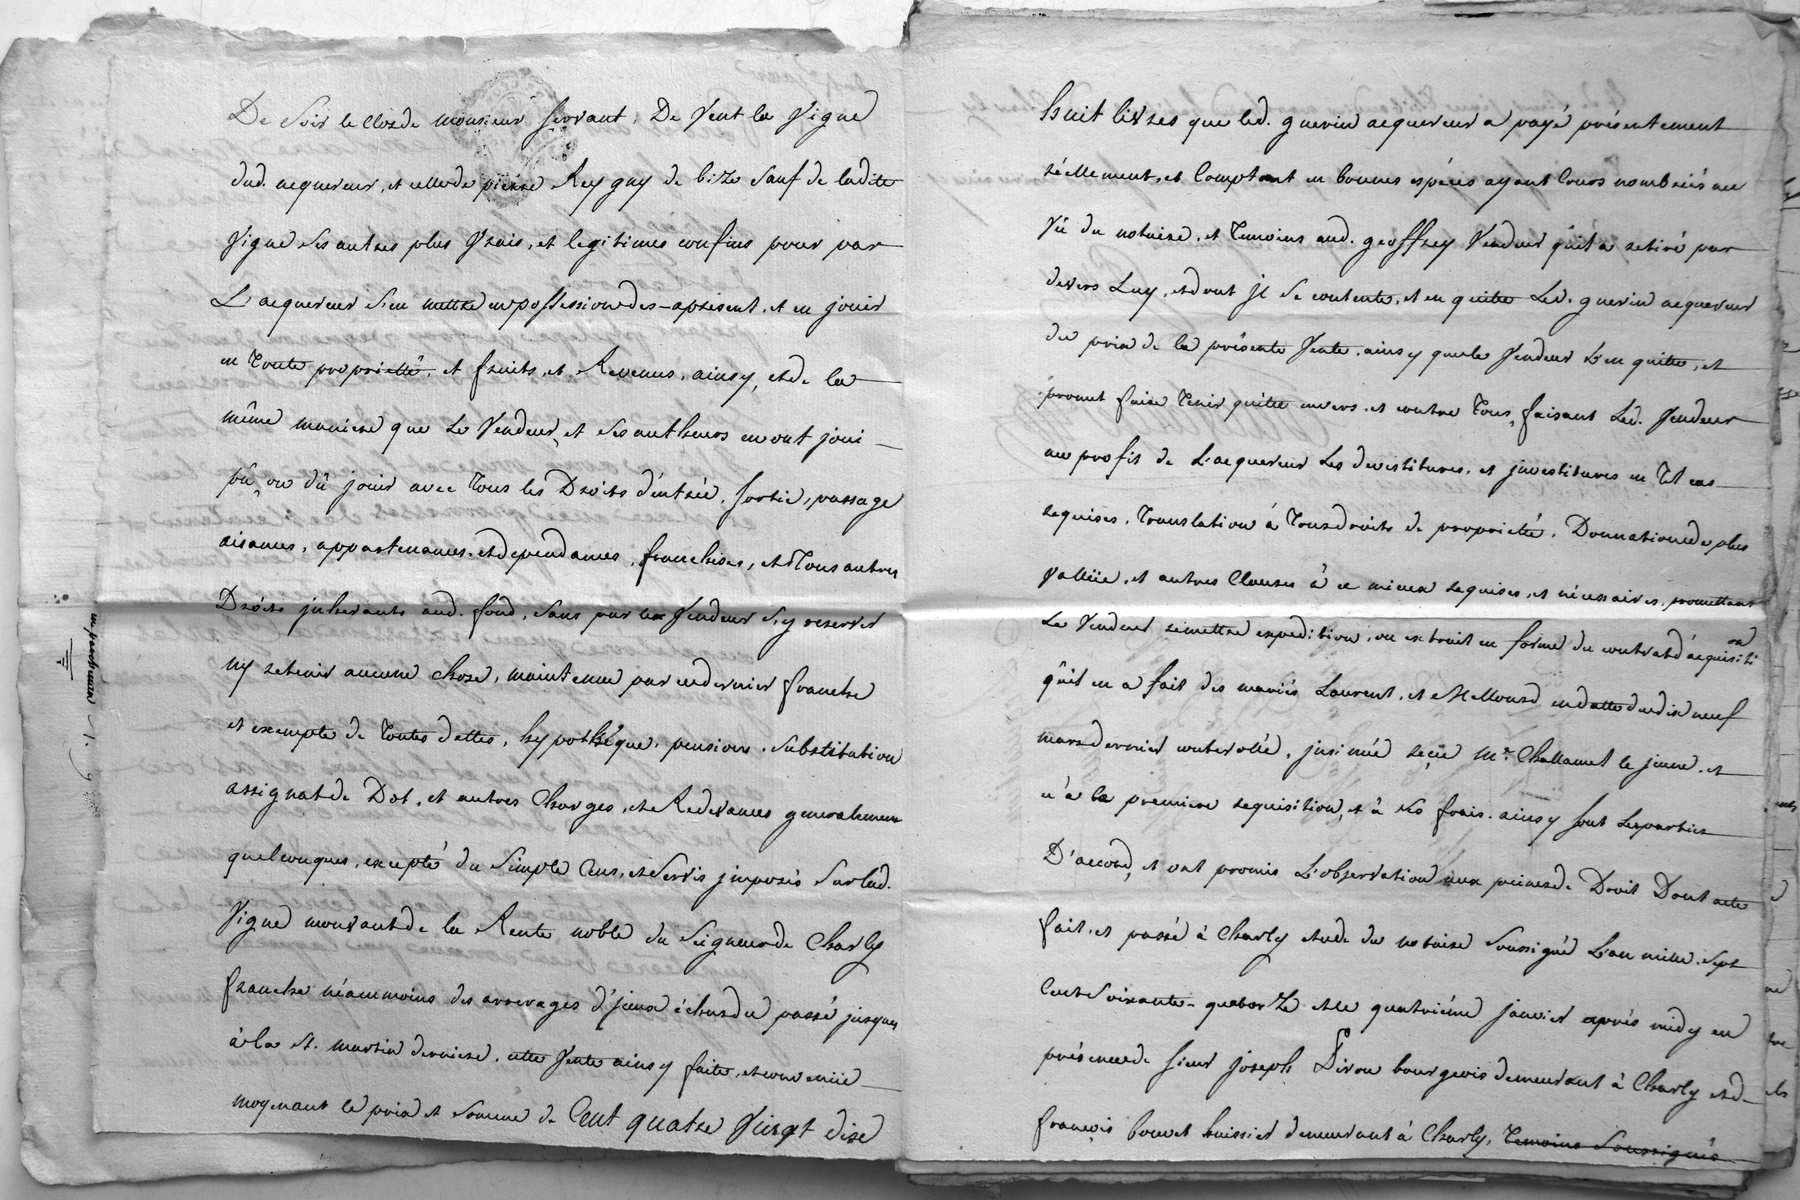 De soir le clos de monsieur servant, De vent la vigne
dud. acquereur, et celle de pierre Rey guy de bize sauf de ladite
vigne ses autres plus vrais, et legitimes confins pour par
L'acquereur s'en mettre en possession des-aprésent, et en jouir
en toute proprieté, et fruits, et Revenus, ainsy, et de la
même maniere que le vendeur, et ses autheurs en ont joui
pû, ou dû jouir avec tous les Droits d'entrée, sortie, passage
aisances, appartenances, et dependances, franchises, et tous autres
Droits inherants aud. fond, sans par le vendeur s'y reserver
ny retenir aucune chose, maintenue par ce dernier franche
et exempte de toutes dettes, hypothéque, pension, substitution
assignat de Dot, et autres charges, et Redevances generalement
quelconques, excepté du simple Cens, et servis imposés sur lad.
vigne mouvant de la Rente noble du seigneur de Charly
franche néanmoins des arrerages d'jceux échus du passé jusques
à la st. martin derniere, cette vente ainsy faite, et convenüe
moyenant le prix et somme de Cent quatre vingt dixe
en parchemin
huit livres que led. guerin acquereur a payé présentement
réellement, et comptant en bonnes espéces ayant cours nombrées au
vû du notaire, et temoins aud. geoffrey vendeur qu'il a retiré par
devers Luy, et dont jl se contente, et en quitte led. guerin acquereur
du prix de la présente vente, ainsy que le vendeur l'en quitte, et
promet faire tenir quitte envers, et contre tous, faisant led. vendeur
au profit de L'acquereur les devestitures, et jnvestitures en tel cas
requises, translation à tous droits de proprieté, Donnation de plus
valüe, et autres Clauses à ce mieux requises, et nécessaires, promettant
le vendeur remettre expedition, ou extrait en forme du contrat d'acquisiti on
qu'il en a fait des mariés Laurent, et Mellourd en datte du dix neuf
mars dernier controllé, jnsinué reçû Mr. Challamel le jeune, et
c'à la premiere requisition, et à ses frais. ainsy sont les parties
D'accord, et ont promis L'observation aux peines de Droit Dont acte
fait, et passé à Charly etude du notaire soussigné L'an mille sept
Cent soixante-quatorze et le quatriéme janvier après midy en
présence de sieur joseph Piron bourgeois demeurant à Charly et de
françois bouvet huissier demeurant à Charly, temoins soussignés